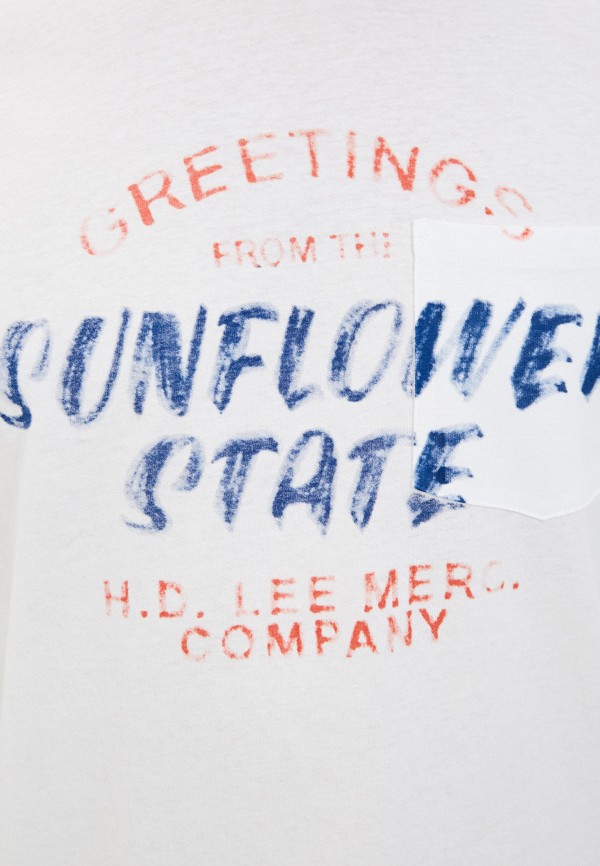 GREETINGS
FROM THE
SUNFLOWER
STATE
H.D. LEE MERC.
COMPANY